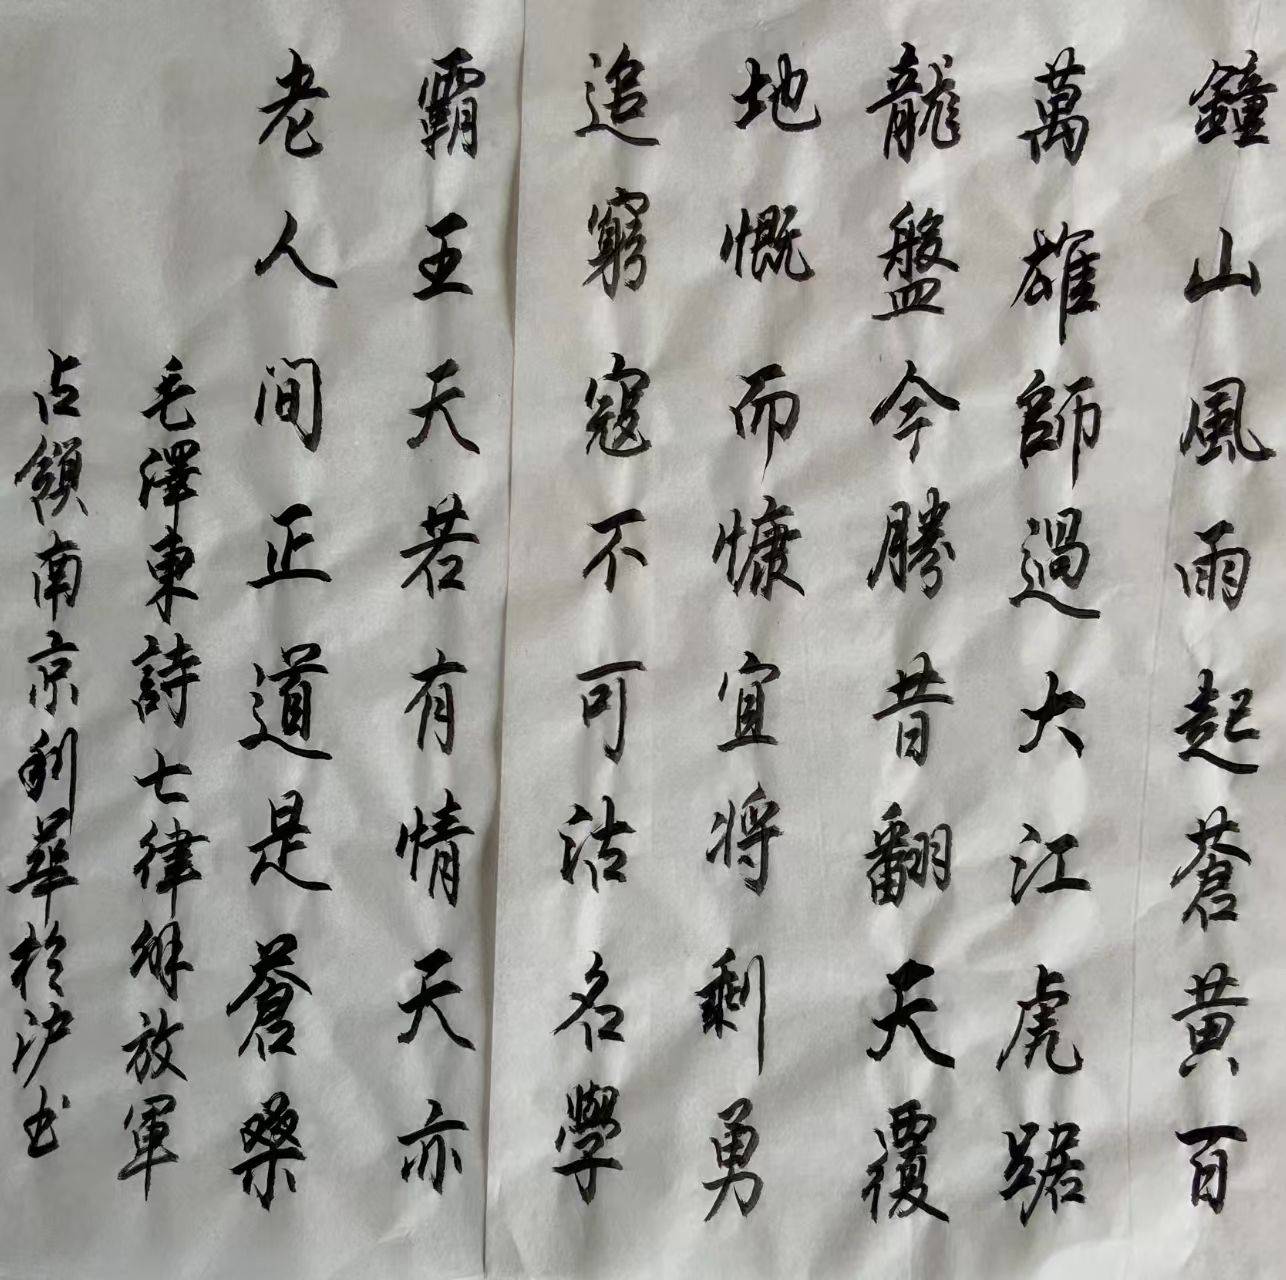 鐘山風雨起蒼黄百
萬雄師過大江虎踞
龍盤今勝昔翻天覆
地慨而慷宜将剩勇
追窮寇不可沽名學
霸王天若有情天亦
老人間正道是蒼桑
毛澤東詩七律解放軍
占領南京利華於沪书